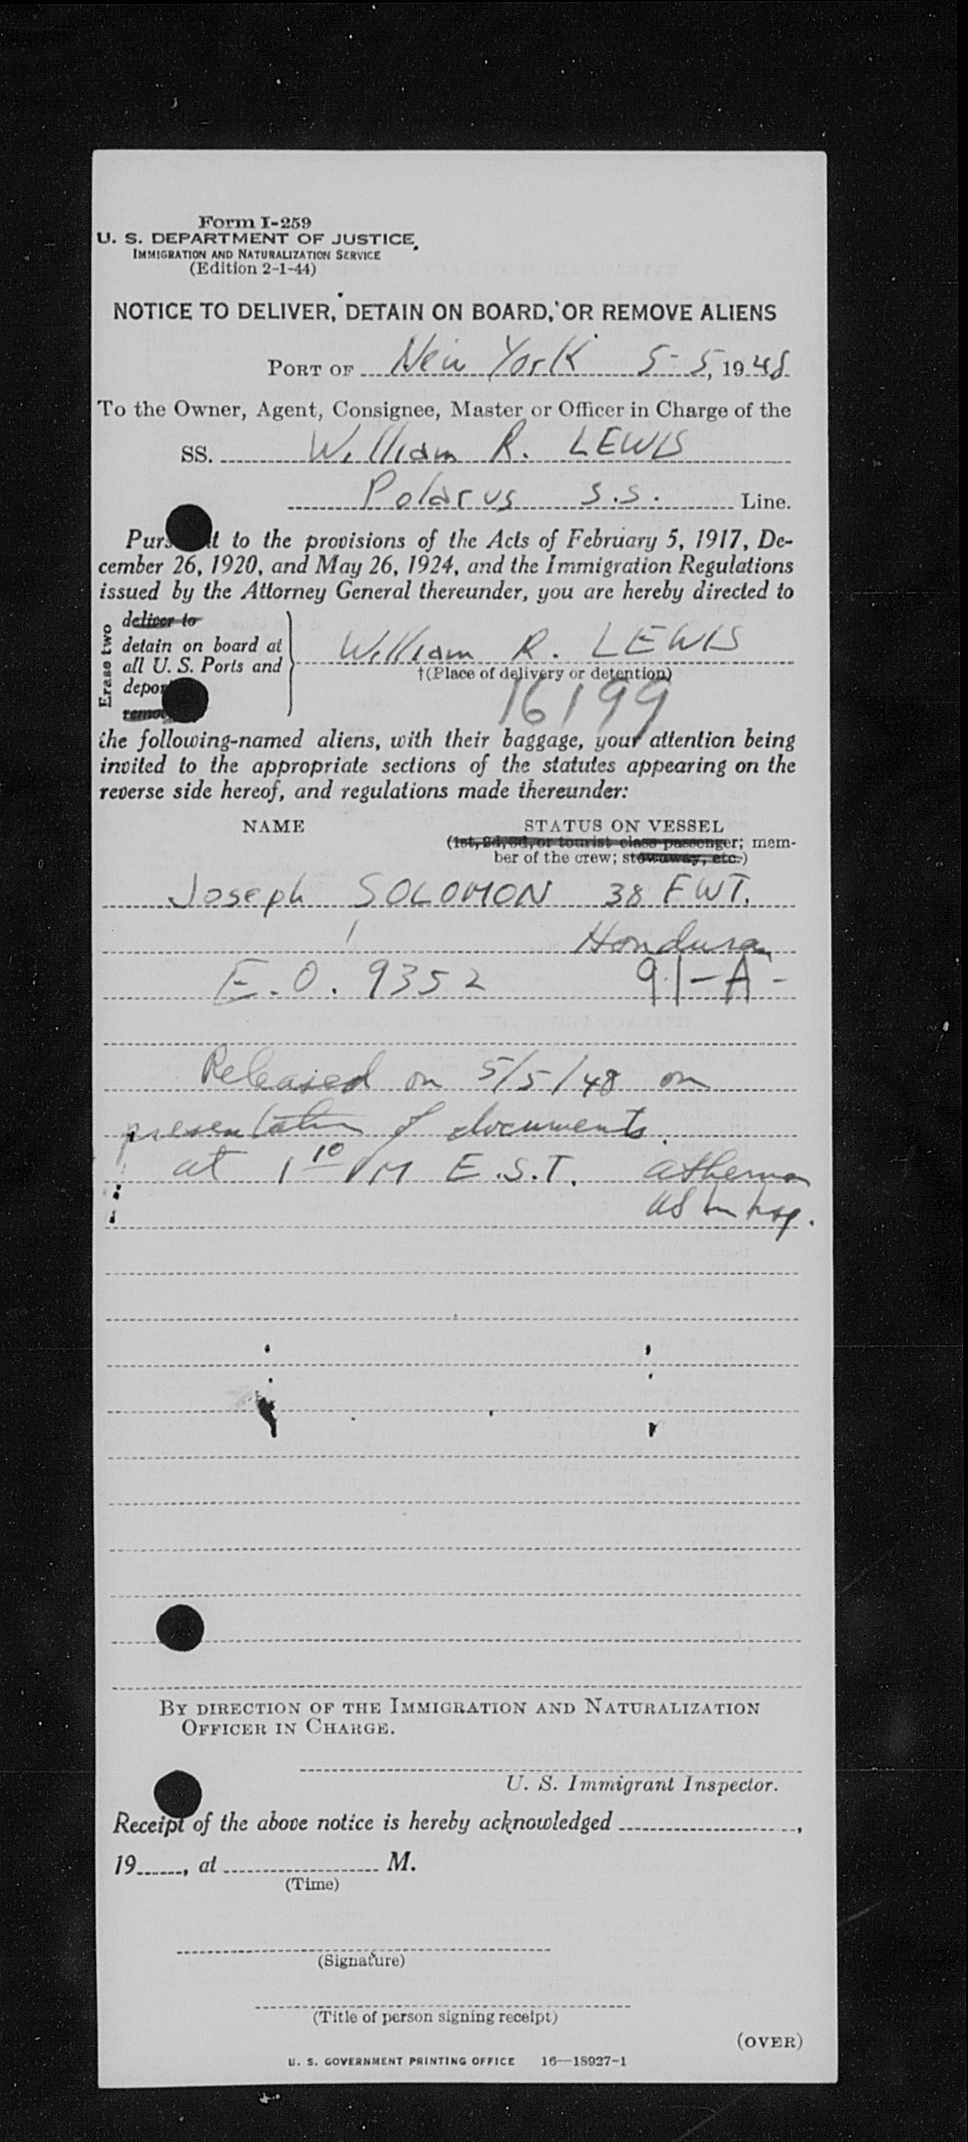 Form I-259
U. S. DEPARTMENT OF JUSTICE
IMMIGRATION AND NATURALIZATION SERVICE
(Edition 2-1-44)
NOTICE TO DELIVER, DETAIN ON BOARD, OR REMOVE ALIENS
PORT OF New York 5-5, 1948
To the Owner, Agent, Consignee, Master or Officer in Charge of the
SS. William R. LEWIS
Polarus S.S. Line.
Pursuant to the provisions of the Acts of February 5, 1917, De-
cember 26, 1920, and May 26, 1924, and the Immigration Regulations
issued by the Attorney General thereunder, you are hereby directed to
Erase two
deliver to
detain on board at
all U. S. Ports and
deport
remove
William R. LEWIS
†(Place of delivery or detention)
16199
the following-named aliens, with their baggage, your attention being
invited to the appropriate sections of the statutes appearing on the
reverse side hereof, and regulations made thereunder:
NAME STATUS ON VESSEL
(1st, 2d, 3d, or tourist class passenger; mem-
ber of the crew; stowaway, etc.)
Joseph SOLOMON 38 FWT.
1 Honduran
E.O. 9352 91-A-
Released on 5/5/48 on
presentation of documents.
at 1 10 PM E.S.T.
BY DIRECTION OF THE IMMIGRATION AND NATURALIZATION
OFFICER IN CHARGE.
U. S. Immigrant Inspector.
Receipt of the above notice is hereby acknowledged ,
19 , at M.
(Time)
(Signature)
(Title of person signing receipt)
(OVER)
U. S. GOVERNMENT PRINTING OFFICE 16—18927-1